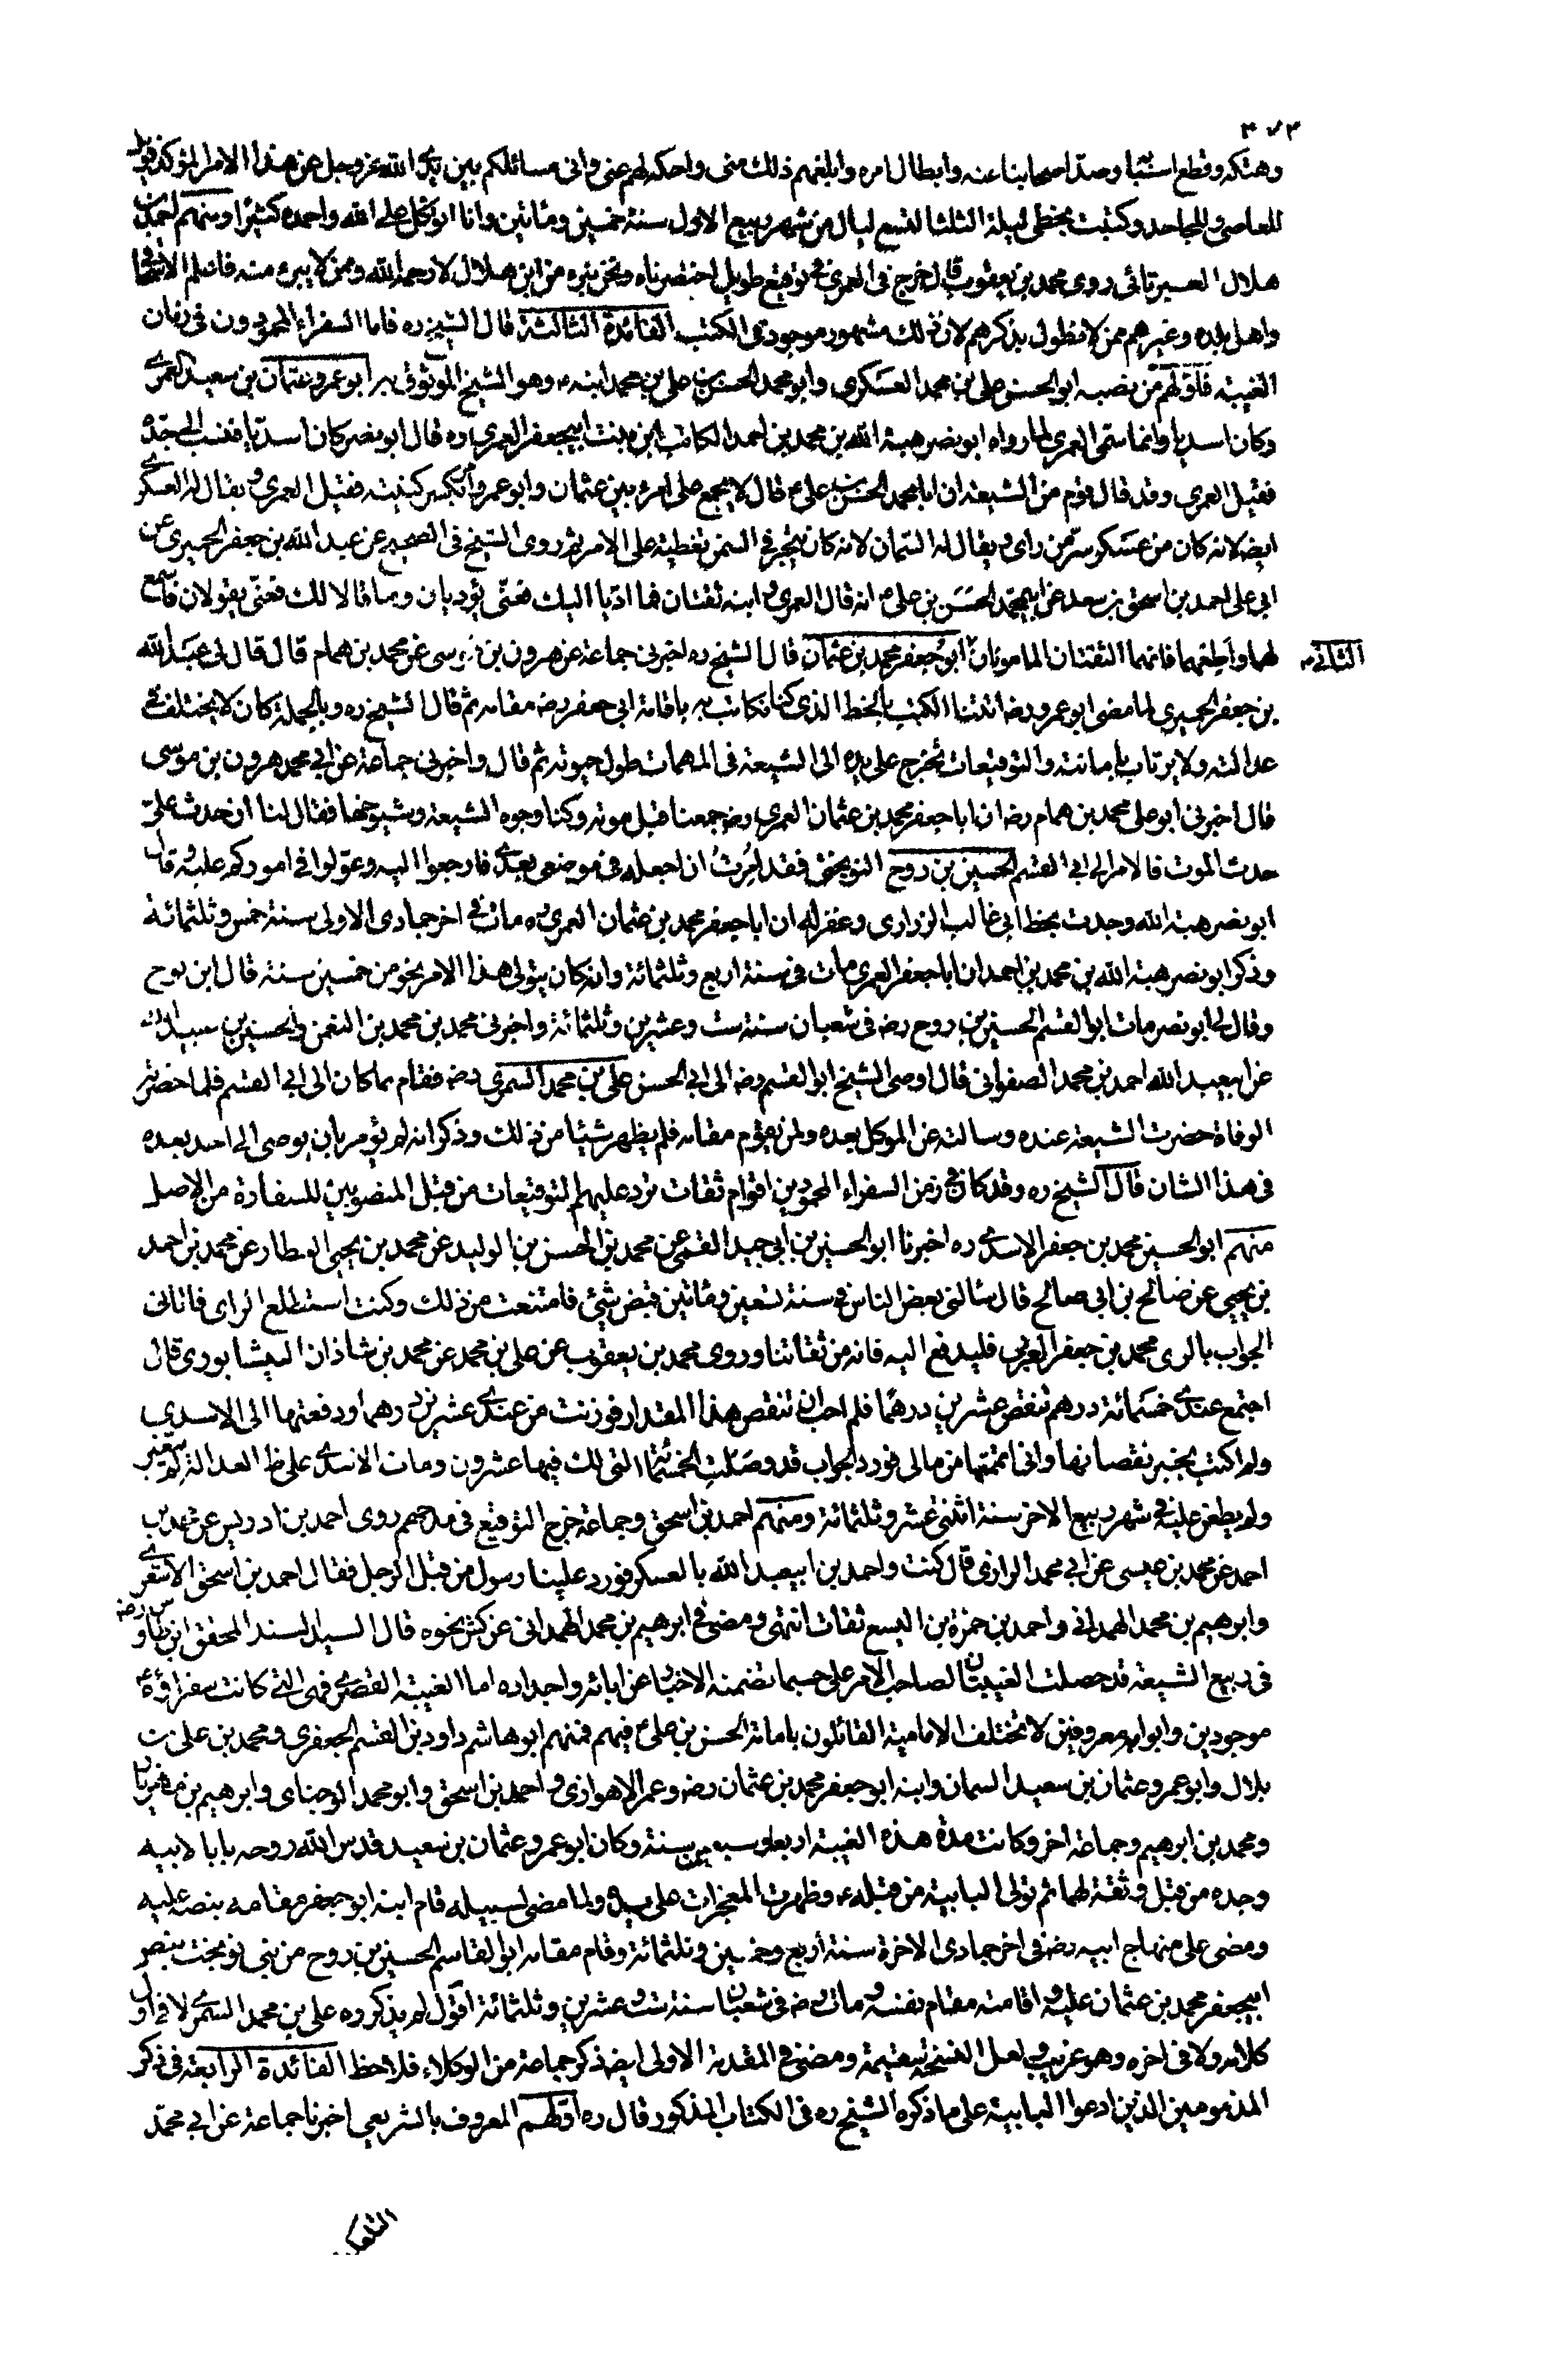 ٣٧٣
وهتكه وقطع اسبابه وصد اصحابنا عنه وابطال امره وابلغهم ذلك منى واحكه لهم عنى وانى مسائلكم بين يدى الله عزوجل عن هذا الامر المؤكد فويل
للعاصى وللجاحد وكتبت بخطى ليلة الثلثا لتسع ليال من شهر ربيع الاول سنة خمسين ومائتين وانا اتوكل على الله واحمده كثيرا ومنهم احمد بن
هلال العبرتائى روى محمد بن يعقوب قال خرج الى العمرى فى توقيع طويل اختصرناه ونحن نبرء من ابن هلال لا رحمه الله وممن لا يبرء منه فاعلم الاسحاقى
واهل بلده وغيرهم ممن لا نطول بذكرهم لان ذلك مشهور موجود فى الكتب الفائدة الثالثة قال الشيخ ره فاما السفراء الممدوحون فى زمان
الغيبة فاولهم من نصبه ابو الحسن على بن محمد العسكرى وابو محمد الحسن بن على بن محمد ابنه ع وهو الشيخ الموثوق به ابو عمرو عثمان بن سعيد العمرى
وكان اسديا وانما سمى العمرى لما رواه ابو نصر هبة الله بن محمد بن احمد الكاتب ابن بنت ابيجعفر العمرى ره قال ابو نصر كان اسديا فنسب الى جده
فقيل العمرى وقد قال قوم من الشيعة ان ابا محمد الحسن بن على ع قال لا يجمع على امرئ بين عثمان وابو عمرو وامر بكسر كنيته فقيل العمرى ويقال له العسكرى
ايضا لانه كان من عسكر سر من راى ويقال له السمان لانه كان يتجر فى السمن تغطية على الامر ثم روى الشيخ فى الصحيح عن عبد الله بن جعفر الحميرى عن
ابى على احمد بن اسحق بن سعد عن ابيمحمد الحسن بن على ع انه قال العمرى وابنه ثقتان فما اديا اليك فعنى يؤديان وما قالا لك فعنى يقولان فاسمع
لهما واطعهما فانهما الثقتان المامونان ابو جعفر محمد بن عثمان قال الشيخ ره اخبرنى جماعة عن هرون بن موسى عن محمد بن همام قال قال لى عبد الله
الثانى
بن جعفر الحميرى لما مضى ابو عمرو رضه اتتنا الكتب بالخط الذى كنا نكاتب به باقامة ابى جعفر رضه مقامه ثم قال الشيخ ره وبالجملة كان لا يختلف فى
عدالته ولا يرتاب بامانته والتوقيعات تخرج على يده الى الشيعة فى المهمات طول حيوته ثم قال واخبرنى جماعة عن ابى محمد هرون بن موسى
قال اخبرنى ابو على محمد بن همام رضه ان ابا جعفر محمد بن عثمان العمرى رضه جمعنا قبل موته وكنا وجوه الشيعة وشيوخها فقال لنا ان حدث على
حدث الموت فالامر الى ابى القسم الحسين بن روح النوبختى فقد امرت ان اجعله فى موضعى بعدى فارجعوا اليه وعولوا فى اموركم عليه وقال
ابو نصر هبة الله وجدت بخط ابى غالب الزرارى وغفر له ان ابا جعفر محمد بن عثمان العمرى ره مات فى اخر جمادى الاولى سنة خمس وثلثمائة
وذكر ابو نصر هبة الله بن محمد بن احمد ان ابا جعفر العمرى مات فى سنة اربع وثلثمائة وانه كان يتولى هذا الامر نحو من خمسين سنة قال ابن نوح
وقال لى ابو نصر مات ابو القسم الحسين بن روح رضه فى شعبان سنة ست وعشرين وثلثمائة واخبرنى محمد بن محمد بن النعمن والحسين بن عبيد الله
عن ابيعبد الله احمد بن محمد الصفوانى قال اوصى الشيخ ابو القسم رضه الى ابى الحسن على بن محمد السمرى رضه فقام بما كان الى ابى القسم فلما حضرته
الوفاة حضرت الشيعة عنده وسالته عن الموكل بعده ولمن يقوم مقامه فلم يظهر شيئا من ذلك وذكر انه لم يؤمر بان يوصى الى احد بعده
فى هذا الشان قال الشيخ ره وقد كان فى زمن السفراء المحمودين اقوام ثقات ترد عليهم التوقيعات من قبل المنصوبين للسفارة من الاصل
منهم ابو الحسين محمد بن جعفر الاسدى ره اخبرنا ابو الحسين بن ابى جيد القمى عن محمد بن الحسن بن الوليد عن محمد بن يحيى العطار عن محمد بن احمد
بن يحيى عن صالح بن ابى صالح قال سئالنى بعض الناس فى سنة تسعين ومائتين قبض شئ فامتنعت من ذلك وكنت استطلع الراى فاتانى
الجواب بالرى محمد بن جعفر العربى فليدفع اليه فانه من ثقاتنا وروى محمد بن يعقوب عن على بن محمد عن محمد بن شاذان النيشابورى قال
اجتمع عندى خمسمائة درهم تنقص عشرين درهما فلم احب ان تنقص هذا المقدار فوزنت من عندى عشرين درهما ودفعتها الى الاسدى
ولم اكتب بخبر نقصانها وانى اتممتها من مالى فورد الجواب قد وصلت الخمسمائة التى لك فيها عشرون ومات الاسدى على ظاهر العدالة لم يتغير
ولم يطعن عليه فى شهر ربيع الاخر سنة اثنتى عشر وثلثمائة ومنهم احمد بن اسحق وجماعة خرج التوقيع فى مدحهم روى احمد بن ادريس عن محمد بن
احمد عن محمد بن عيسى عن ابى محمد الرازى قال كنت واحمد بن ابيعبد الله بالعسكر فورد علينا رسول من قبل الرجل فقال احمد بن اسحق الاشعرى
وابرهيم بن محمد الهمدانى واحمد بن حمزة بن اليسع ثقات انتهى ومضى فى ابرهيم بن محمد الهمدانى عن كش نحوه قال السيد السند المحقق ابن طاوس رضه
فى ربيع الشيعة قد حصلت الغيبتان لصاحب الامر على حسبما تضمنه الاخبار عن ابائه واجداده اما الغيبة القصرى فهى التى كانت سفراؤه ع
موجودين وابوابه معروفين لا تختلف الامامية القائلون بامامة الحسن بن على ع فيهم فمنهم ابو هاشم داود بن القسم الجعفرى ومحمد بن على بن
بلال وابو عمرو عثمان بن سعيد السمان وابنه ابو جعفر محمد بن عثمان رضه وعمر الاهوازى واحمد بن اسحق وابو محمد الوجناى وابرهيم بن مهزيار
ومحمد بن ابرهيم وجماعة اخر وكانت مدة هذه الغيبة اربعا وسبعين سنة وكان ابو عمرو عثمان بن سعيد قدس الله روحه بابا لابيه
وجده من قبل وثقة لهما ثم تولى البابية من قبله ع وظهرت المعجزات على يده ولما مضى لسبيله قام ابنه ابو جعفر مقامه بنصه عليه
ومضى على منهاج ابيه رضه فى اخر جمادى الاخرة سنة اربع وخمسين وثلثمائة وقام مقامه ابو القاسم الحسين بن روح من بنى نوبخت بنص
ابيجعفر محمد بن عثمان عليه واقامته مقام نفسه ومات رضه فى شعبان سنة ست وعشرين وثلثمائة اقول لم يذكر ره على بن محمد السمرى لا فى اول
كلامه ولا فى اخره وهو غريب ولعل النسخة سقيمة ومضى فى المقدمة الاولى ايضا ذكر جماعة من الوكلاء فلاحظ الفائدة الرابعة فى ذكر
المذمومين الذين ادعوا البابية على ما ذكره الشيخ ره فى الكتاب المذكور قال ره اولهم المعروف بالشريعى اخبرنا جماعة عن ابى محمد
التلعكبرى